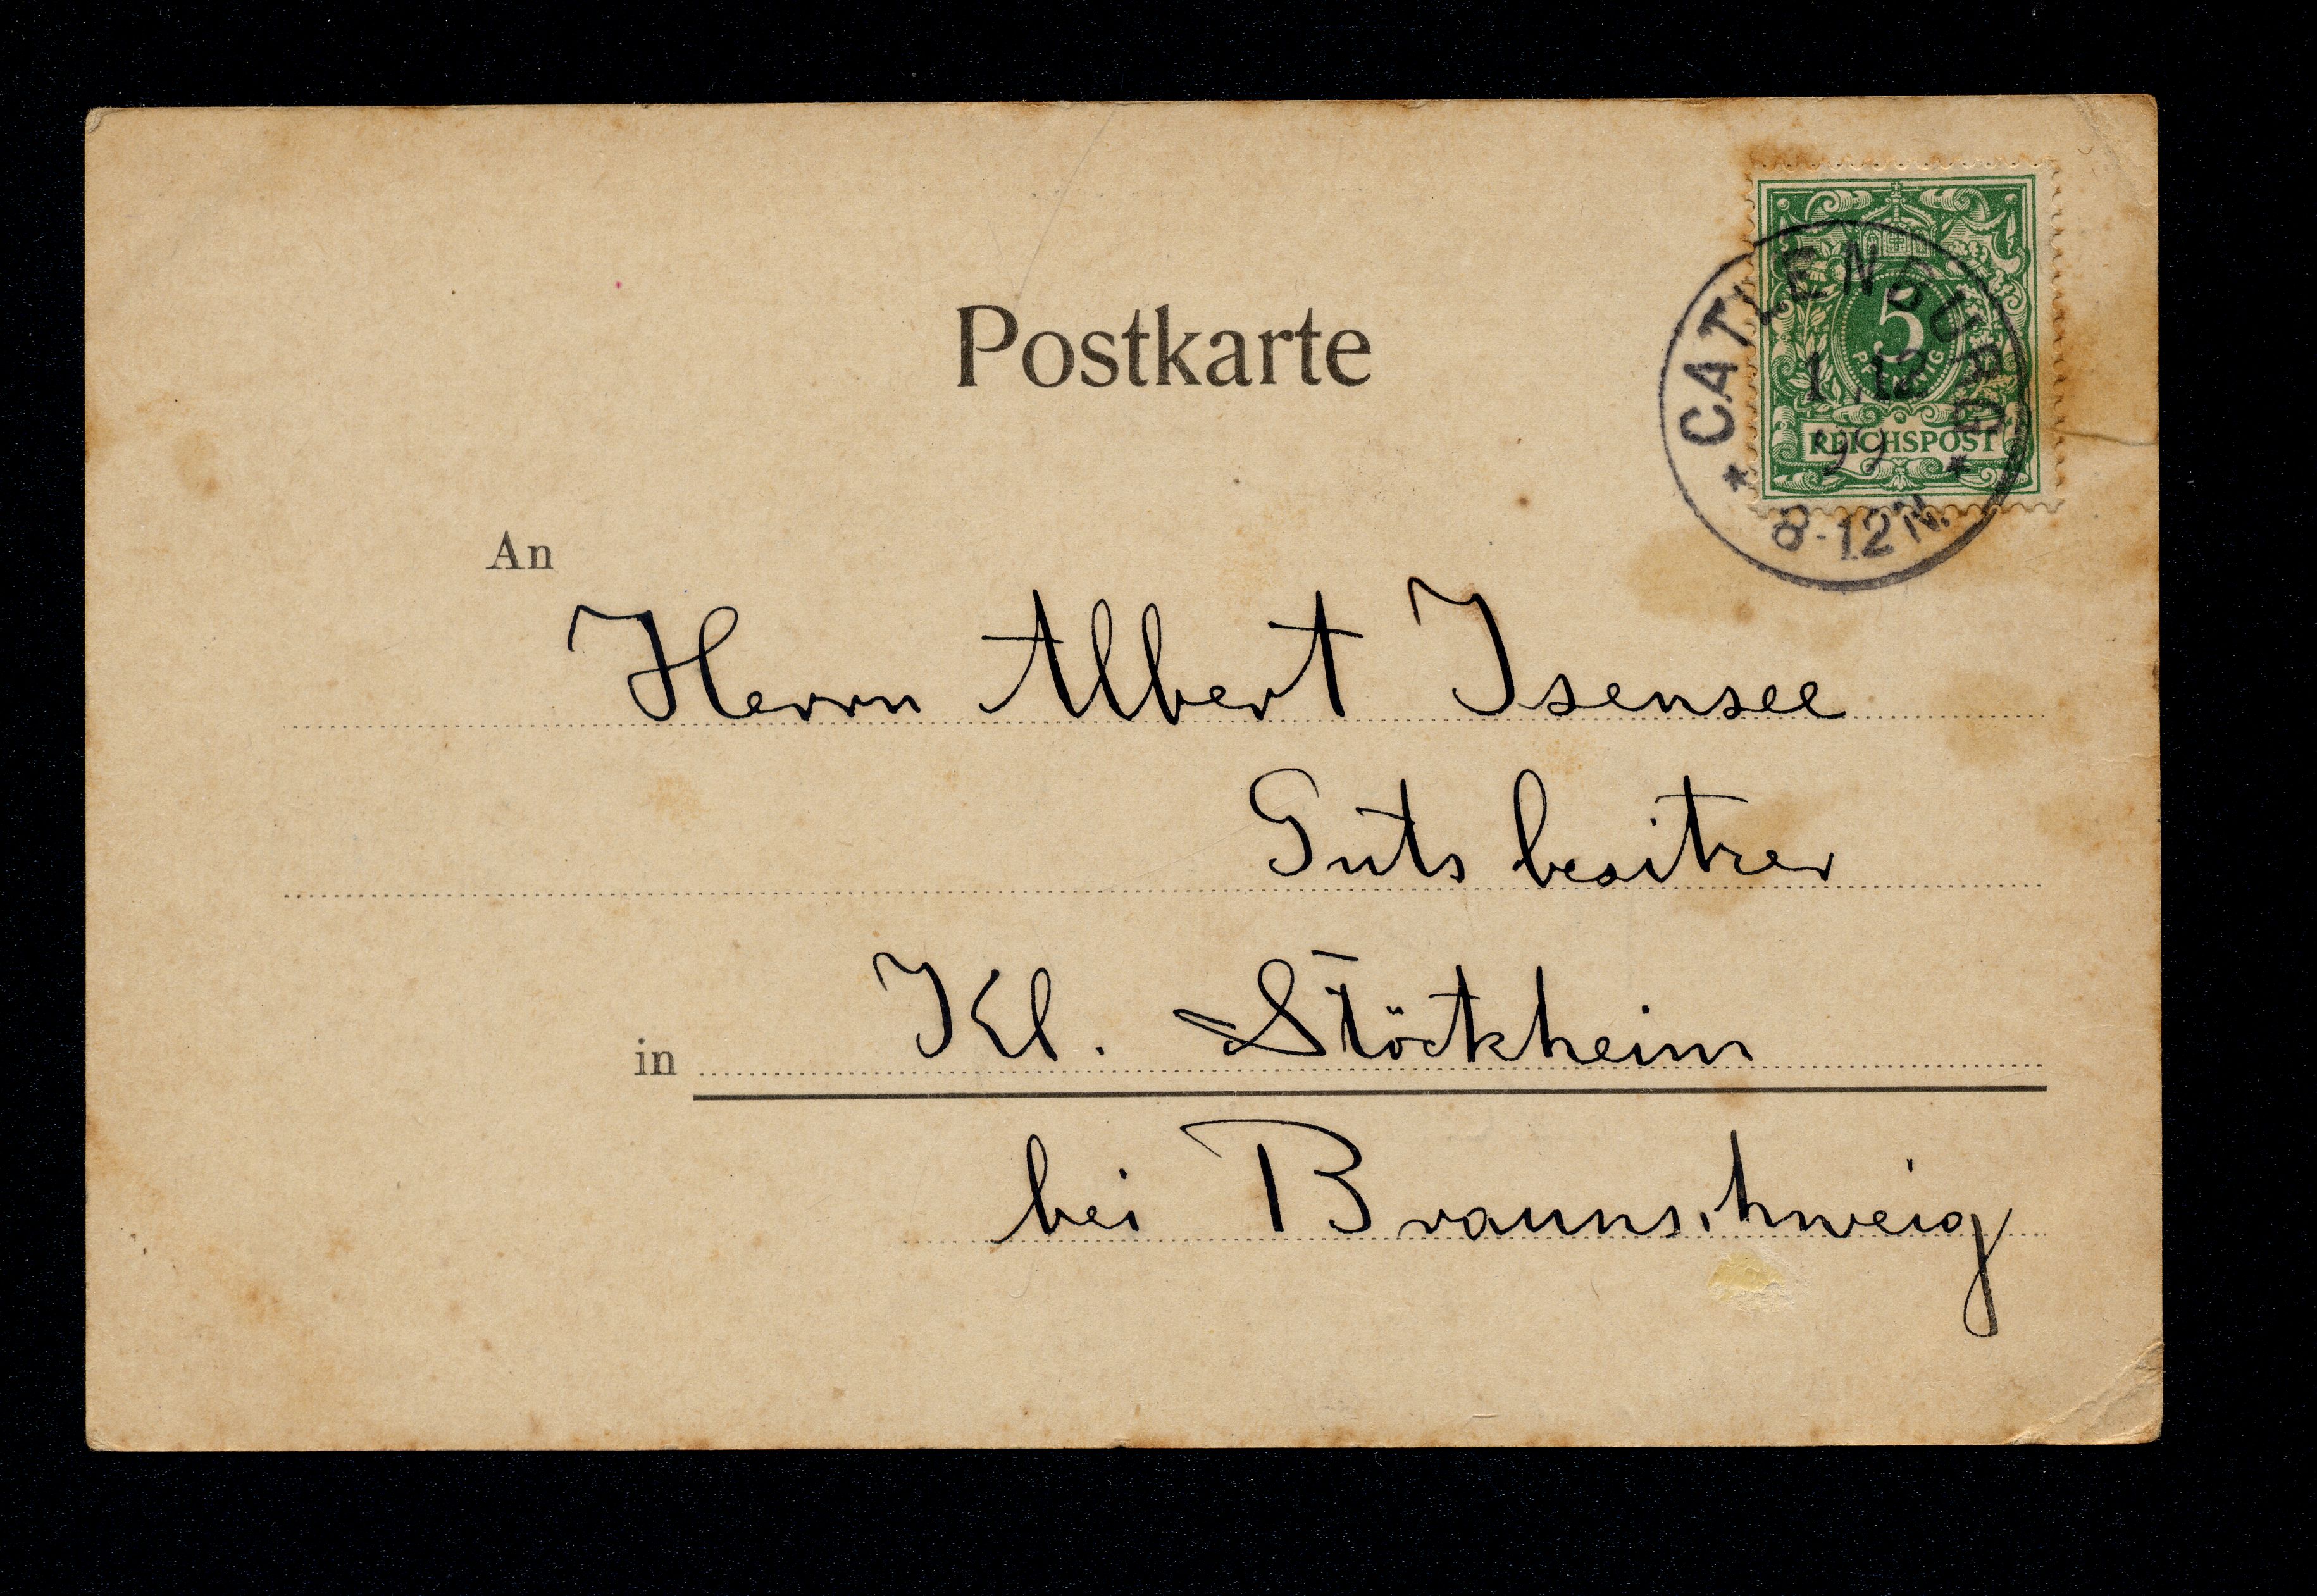 Postkarte
CATLENBURG
5
PFENNIG
1.12
99
REICHSPOST
8-12N.
An
Herrn Albert Isensee
Gutsbesitzer
in Kl. Stöckheim
bei Braunschweig